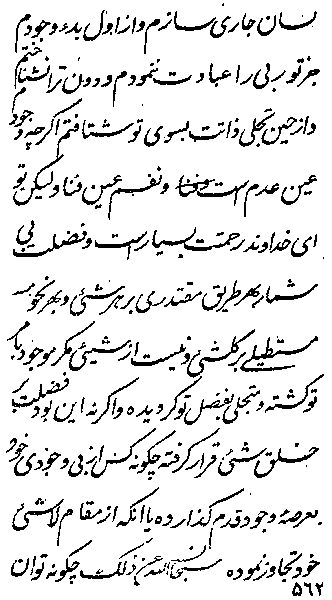 لسان جاری سازم و از اول بدء وجودم
جز تو ربی را عبادت ننمودم و دون ترا نشناختم
و از حین تجلی ذاتت بسوی تو شتافتم اگرچه وجودم
عین عدم است و نفسم عین فنا ولیکن تو
ای خداوند رحمتت بسیار است و فضلت بی
شمار بهر طریق مقتدری بر هر شئی و بهر نحو
مستطیلی بر کلشئی و نیست از شیئی مگر موجود بامر
تو گشته و متجلی بفضل تو گردیده و اگر نه این بود فضلت بر
خلق شئی قرار گرفته چگونه کس از بی وجودی خود
بعرصهٔ وجود قدم گذارده یا آنکه از مقام لاشئی
خود تجاوز نموده سبحان الله عن ذلک چگونه توان
۵۶۲